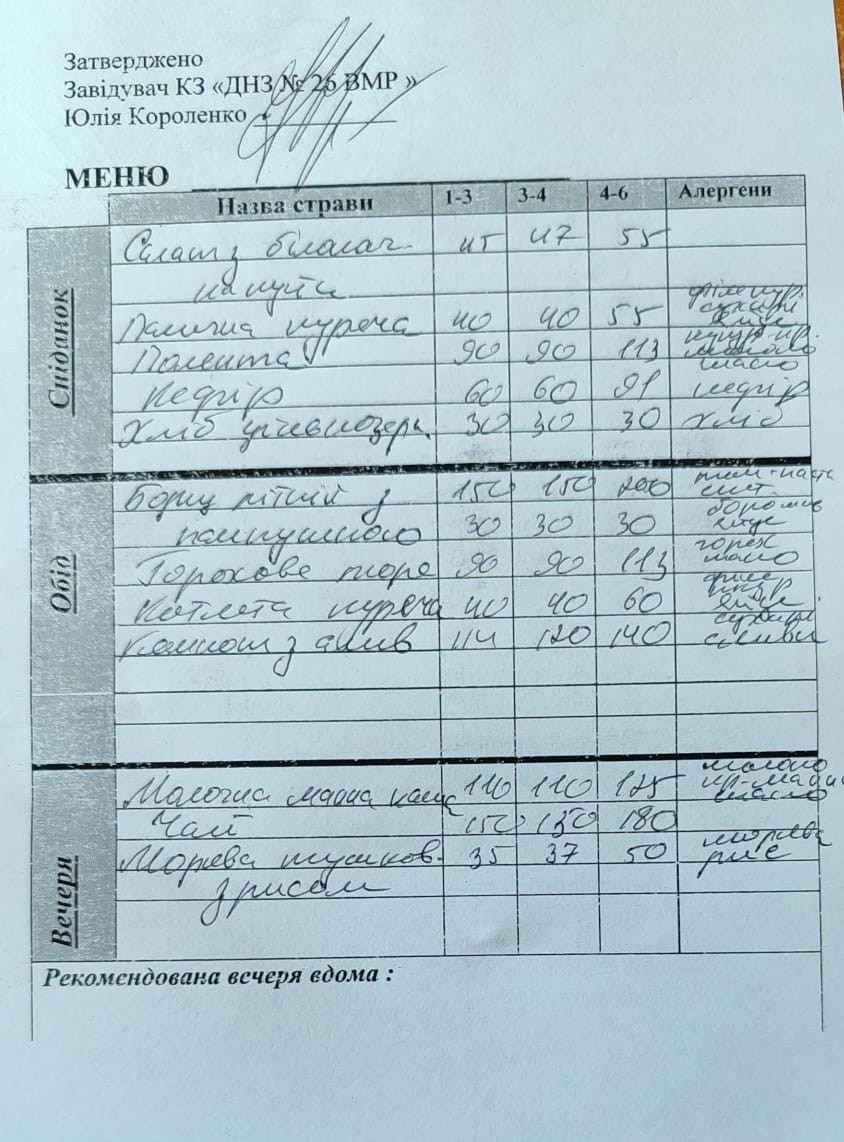 Затверджено
Завідувач КЗ «ДНЗ № 26 ВМР »
Юлія Короленко
МЕНЮ
Назва страви 1-3 3-4 4-6 Алергени
Сніданок
Салат з білокач. 45 47 55
капусти
Паличка куряча 40 40 55 філе кур. сухарі яйце
Полента 90 90 113 кукур. кр. молоко масло
Кефір 60 60 91 кефір
Хліб цільнозерн. 30 30 30 хліб
Обід
Борщ літній з 150 150 200 том. паста смет.
пампушкою 30 30 30 борошно яйце
Горохове пюре 90 90 113 горох масло
Котлета куряча 40 40 60 філе кур. яйце
Компот з слив 114 120 140 сухарі сливи
Вечеря
Молочна манна каша 110 110 125 молоко кр-манна масло
Чай 150 150 180
Морква тушков. 35 37 50 морква рис
з рисом
Рекомендована вечеря вдома :